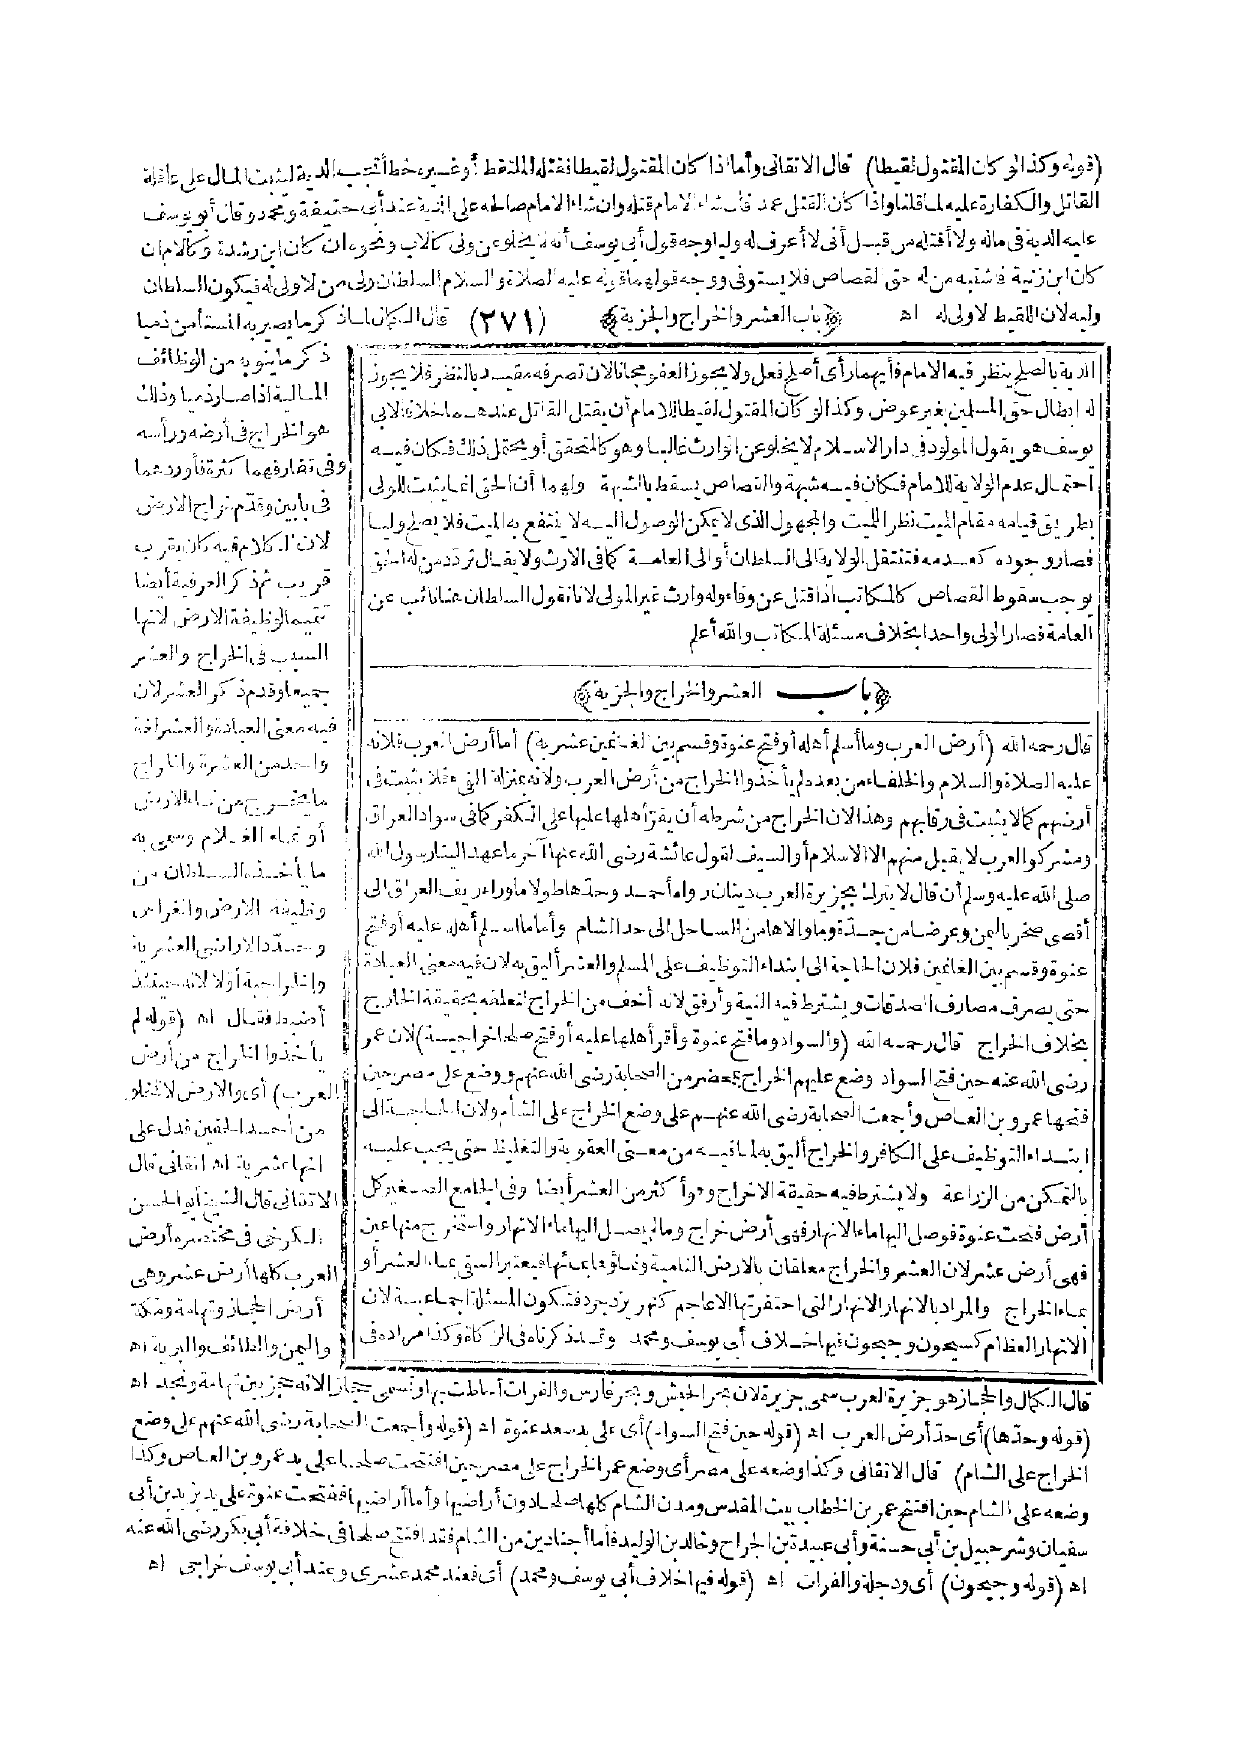 (قوله وكذا لو كان المقتول لقيطا) قال الاتقانى وأما اذا كان المقتول لقيطا فقتله الملتقط أو غيره خطأ تجب الدية لبيت المال على عاقلة
القاتل والكفارة عليه لما قلنا واذا كان القتل عمدا فان شاء الامام قتله وان شاء الامام صالحه على الدية عند أبى حنيفة ومحمد وقال أبو يوسف
عليه الدية فى ماله ولا أقتله من قبل أنى لا أعرف له وليا وجه قول أبى يوسف أنه لا يخلو عن ولى كالاب ونحوه ان كان ابن رشدة وكالام ان
كان ابن زنية فاشتبه من له حق القصاص فلا يستوفى ووجه قولهما قوله عليه الصلاة والسلام السلطان ولى من لا ولى له فيكون السلطان
وليه لان اللقيط لا ولى له اه
﴿باب العشر والخراج والجزية﴾
(٢٧١)
قال الكمال لما ذكر ما يصير به المستأمن ذميا
ذكر ما ينوبه من الوظائف
المالية اذا صار ذميا وذلك
هو الخراج فى أرضه ورأسه
وفى تفاريقهما كثرة فأوردهما
فى بابين وقدم خراج الارض
لان الكلام فيه كان بقرب
قريب ثم ذكر العشر فيه أيضا
تتميما لوظيفة الارض لانها
السبب فى الخراج والعشر
جميعا وقدم ذكر العشر لان
فيه معنى العبادة والعشر لغة
واحد من العشرة والخراج
ما يخرج من نماء الارض
أو نماء الغلام وسمى به
ما يأخذه السلطان من
وظيفة الارض والرأس
وحدد الاراضى العشرية
والخراجية أولا لانه حينئذ
أضبط فقال اه (قوله لم
يأخذوا الخراج من أرض
العرب) أى والارض لا تخلو
من أحد الحقين فدل على
انها عشرية اه اتقانى قال
الاتقانى قال الشيخ أبو الحسن
الكرخى فى مختصره أرض
العرب كلها أرض عشر وهى
أرض الحجاز وتهامة ومكة
واليمن والطائف والبرية اه
الدية بالصلح ينظر فيه الامام فأيهما رأى أصلح فعل ولا يجوز العفو مجانا لان تصرفه مقيد بالنظر فلا يجوز
له ابطال حق المسلمين بغير عوض وكذا لو كان المقتول لقيطا للامام أن يقتل القاتل عندهما خلافا لابى
يوسف هو يقول المولود فى دار الاسلام لا يخلو عن الوارث غالبا وهو كالمتحقق أو يحتمل ذلك فكان فيه
احتمال عدم الولاية للامام فكان فيه شبهة والقصاص يسقط بالشبهة ولهما أن الحق انما يثبت للولى
بطريق قيامه مقام الميت نظرا للميت والمجهول الذى لا يمكن الوصول اليه لا ينتفع به الميت فلا يصلح وليا
فصار وجوده كعدمه فتنتقل الولاية الى السلطان أو الى العامة كما فى الارث ولا يقال تردد من له الحق
يوجب سقوط القصاص كالمكاتب اذا قتل عن وفاء وله وارث غير المولى لانا نقول السلطان هنا نائب عن
العامة فصار الولى واحدا بخلاف مسئلة المكاتب والله أعلم
﴿باب العشر والخراج والجزية﴾
قال رحمه الله (أرض العرب وما أسلم أهله أو فتح عنوة وقسم بين الغانمين عشرية) أما أرض العرب فلانه
عليه الصلاة والسلام والخلفاء من بعده لم يأخذوا الخراج من أرض العرب ولانه بمنزلة الفىء فلا يثبت فى
أرضهم كما لا يثبت فى رقابهم وهذا لان الخراج من شرطه أن يقر أهلها عليها على الكفر كما فى سواد العراق
ومشركو العرب لا يقبل منهم الا الاسلام أو السيف لقول عائشة رضى الله عنها آخر ما عهد الينا رسول الله
صلى الله عليه وسلم أن قال لا يترك بجزيرة العرب دينان رواه أحمد وحدها طولا ما وراء ريف العراق الى
أقصى صخر باليمن وعرضا من جدة وما والاها من الساحل الى حد الشام وأما ما أسلم أهله عليه أو فتح
عنوة وقسم بين الغانمين فلان الحاجة الى ابتداء التوظيف على المسلم والعشر أليق به لان فيه معنى العبادة
حتى يصرف مصارف الصدقات ويشترط فيه النية وأرفق لانه أخف من الخراج لتعلقه بحقيقة الخارج
بخلاف الخراج قال رحمه الله (والسواد وما فتح عنوة وأقر أهلها عليه أو فتح صلحا خراجية) لان عمر
رضى الله عنه حين فتح السواد وضع عليهم الخراج بمحضر من الصحابة رضى الله عنهم ووضع على مصر حين
فتحها عمرو بن العاص وأجمعت الصحابة رضى الله عنهم على وضع الخراج على الشأم ولان الحاجة الى
ابتداء التوظيف على الكافر والخراج أليق به لما فيه من معنى العقوبة والتغليظ حتى يجب عليه
بالتمكن من الزراعة ولا يشترط فيه حقيقة الاخراج وهو أكثر من العشر أيضا وفى الجامع الصغير كل
أرض فتحت عنوة فوصل اليها ماء الانهار فهى أرض خراج وما لم يصل اليها ماء الانهار واستخرج منها عين
فهى أرض عشر لان العشر والخراج معلقان بالارض النامية ونماؤها بمائها فيعتبر السقى بماء العشر أو
بماء الخراج والمراد بالانهار الانهار التى احتفرتها الاعاجم كنهر يزدجرد فتكون المسئلة اجماعية لان
الانهار العظام كسيحون وجيحون فيها خلاف أبى يوسف ومحمد وقد ذكرناه فى الزكاة وكذا مراده فى
قال الكمال والحجاز هو جزيرة العرب سمى جزيرة لان بحر الحبش وبحر فارس والفرات أحاطت بها وتسمى حجازا لانه حجز بين تهامة ونجد اه
(قوله وحدها) أى حد أرض العرب اه (قوله حين فتح السواد) أى على يد سعد عنوة اه (قوله وأجمعت الصحابة رضى الله عنهم على وضع
الخراج على الشام) قال الاتقانى وكذا وضعه على مصر أى وضع عمر الخراج على مصر حين افتتحت صلحا على يد عمرو بن العاص وكذا
وضعه على الشام حين افتتح عمر بن الخطاب بيت المقدس ومدن الشام كلها صلحا دون أراضيها وأما أراضيها ففتحت عنوة على يد يزيد بن أبى
سفيان وشرحبيل بن أبى حسنة وأبى عبيدة بن الجراح وخالد بن الوليد فأما أجنادين من الشام فقد افتتح صلحا فى خلافة أبى بكر رضى الله عنه
اه (قوله وجيحون) أى ودجلة والفرات اه (قوله فيها خلاف أبى يوسف ومحمد) أى فعند محمد عشرى وعند أبى يوسف خراجى اه